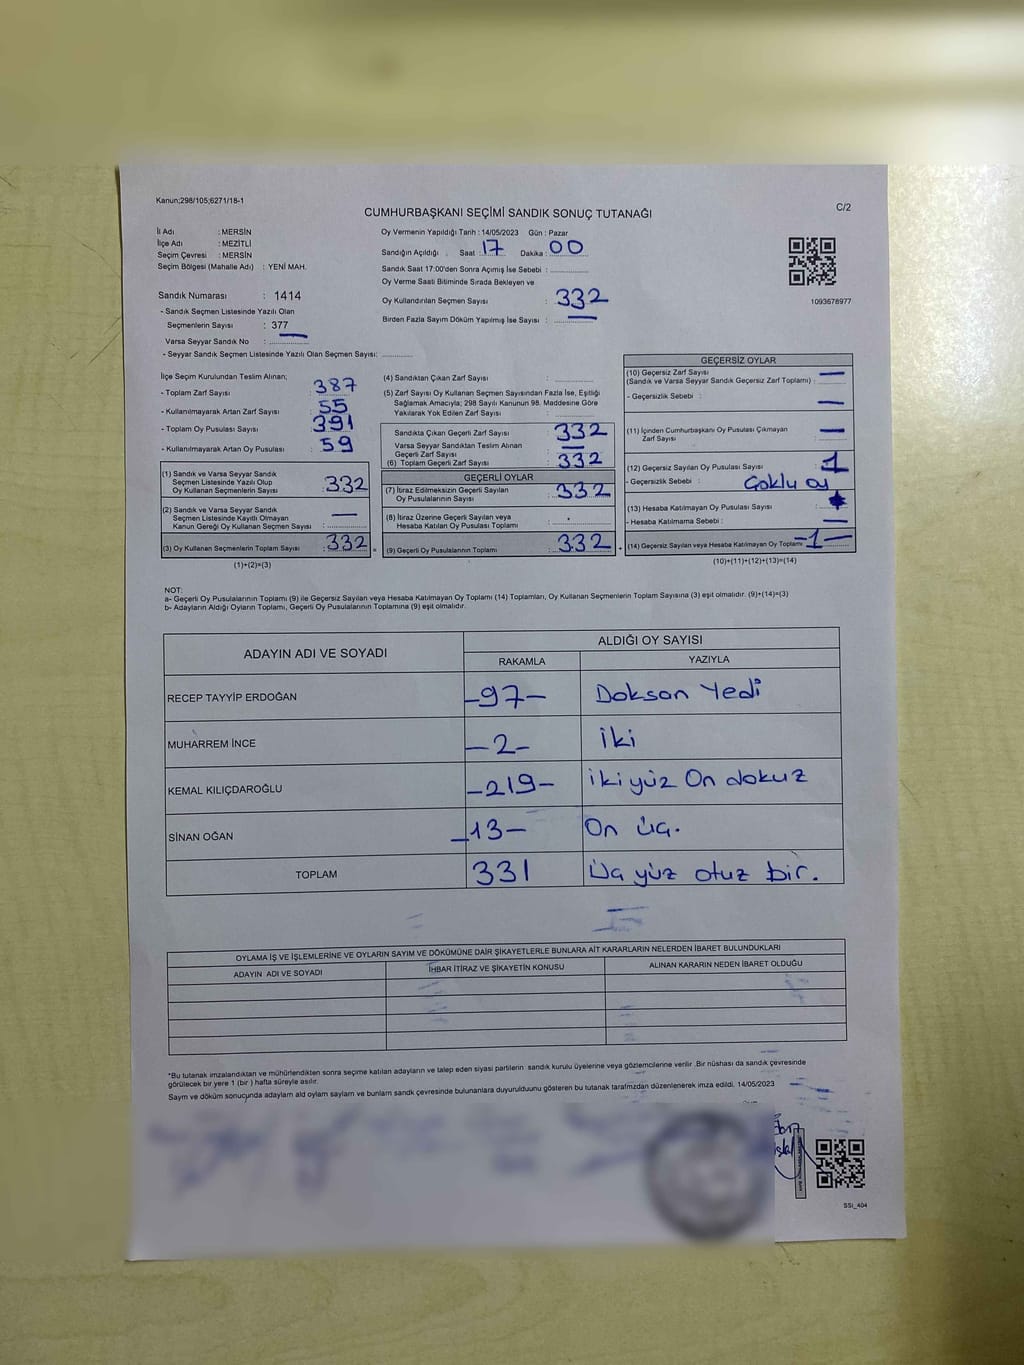 Kanun;298/105;6271/18-1
C/2
CUMHURBAŞKANI SEÇİMİ SANDIK SONUÇ TUTANAĞI
İl Adı : MERSİN
İlçe Adı : MEZİTLİ
Seçim Çevresi : MERSİN
Seçim Bölgesi (Mahalle Adı) : YENİ MAH.
Sandık Numarası : 1414
- Sandık Seçmen Listesinde Yazılı Olan
Seçmenlerin Sayısı : 377
Varsa Seyyar Sandık No : —
- Seyyar Sandık Seçmen Listesinde Yazılı Olan Seçmen Sayısı: ............
Oy Vermenin Yapıldığı Tarih : 14/05/2023 Gün : Pazar
Sandığın Açıldığı : Saat : 17 Dakika : 00
Sandık Saat 17:00'den Sonra Açılmış İse Sebebi : ............
Oy Verme Saati Bitiminde Sırada Bekleyen ve
Oy Kullandırılan Seçmen Sayısı : 332
Birden Fazla Sayım Döküm Yapılmış İse Sayısı : —
1093678977
İlçe Seçim Kurulundan Teslim Alınan;
- Toplam Zarf Sayısı : 387
- Kullanılmayarak Artan Zarf Sayısı : 55
- Toplam Oy Pusulası Sayısı : 391
- Kullanılmayarak Artan Oy Pusulası : 59
(1) Sandık ve Varsa Seyyar Sandık
Seçmen Listesinde Yazılı Olup
Oy Kullanan Seçmenlerin Sayısı : 332
(2) Sandık ve Varsa Seyyar Sandık
Seçmen Listesinde Kayıtlı Olmayan
Kanun Gereği Oy Kullanan Seçmen Sayısı : —
(3) Oy Kullanan Seçmenlerin Toplam Sayısı : 332 =
(1)+(2)=(3)
(4) Sandıktan Çıkan Zarf Sayısı : ............
(5) Zarf Sayısı Oy Kullanan Seçmen Sayısından Fazla İse, Eşitliği
Sağlamak Amacıyla; 298 Sayılı Kanunun 98. Maddesine Göre
Yakılarak Yok Edilen Zarf Sayısı : ............
Sandıkta Çıkan Geçerli Zarf Sayısı : 332
Varsa Seyyar Sandıktan Teslim Alınan
Geçerli Zarf Sayısı : —
(6) Toplam Geçerli Zarf Sayısı : 332
GEÇERLİ OYLAR
(7) İtiraz Edilmeksizin Geçerli Sayılan
Oy Pusulalarının Sayısı : 332
(8) İtiraz Üzerine Geçerli Sayılan veya
Hesaba Katılan Oy Pusulası Toplamı : ............
(9) Geçerli Oy Pusulalarının Toplamı : 332 +
GEÇERSİZ OYLAR
(10) Geçersiz Zarf Sayısı —
(Sandık ve Varsa Seyyar Sandık Geçersiz Zarf Toplamı) :
- Geçersizlik Sebebi : —
(11) İçinden Cumhurbaşkanı Oy Pusulası Çıkmayan
Zarf Sayısı : —
(12) Geçersiz Sayılan Oy Pusulası Sayısı : 1
- Geçersizlik Sebebi : Çoklu oy
(13) Hesaba Katılmayan Oy Pusulası Sayısı :
- Hesaba Katılmama Sebebi : —
(14) Geçersiz Sayılan veya Hesaba Katılmayan Oy Toplamı : -1-
(10)+(11)+(12)+(13)=(14)
NOT:
a- Geçerli Oy Pusulalarının Toplamı (9) ile Geçersiz Sayılan veya Hesaba Katılmayan Oy Toplamı (14) Toplamları, Oy Kullanan Seçmenlerin Toplam Sayısına (3) eşit olmalıdır. (9)+(14)=(3)
b- Adayların Aldığı Oyların Toplamı, Geçerli Oy Pusulalarının Toplamına (9) eşit olmalıdır.
ADAYIN ADI VE SOYADI ALDIĞI OY SAYISI
RAKAMLA YAZIYLA
RECEP TAYYİP ERDOĞAN -97- Doksan Yedi
MUHARREM İNCE -2- iki
KEMAL KILIÇDAROĞLU -219- ikiyüz On dokuz
SİNAN OĞAN -13- On üç.
TOPLAM 331 Üç yüz otuz bir.
OYLAMA İŞ VE İŞLEMLERİNE VE OYLARIN SAYIM VE DÖKÜMÜNE DAİR ŞİKAYETLERLE BUNLARA AİT KARARLARIN NELERDEN İBARET BULUNDUKLARI
ADAYIN ADI VE SOYADI İHBAR İTİRAZ VE ŞİKAYETİN KONUSU ALINAN KARARIN NEDEN İBARET OLDUĞU
*Bu tutanak imzalandıktan ve mühürlendikten sonra seçime katılan adayların ve talep eden siyasi partilerin sandık kurulu üyelerine veya gözlemcilerine verilir. Bir nüshası da sandık çevresinde
görülecek bir yere 1 (bir ) hafta süreyle asılır.
Sayım ve döküm sonucunda adayların ald oyların sayıların ve bunların sandk çevresinde bulunanlara duyurulduunu gösteren bu tutanak tarafmzdan düzenlenerek imza edildi. 14/05/2023
SSI_404